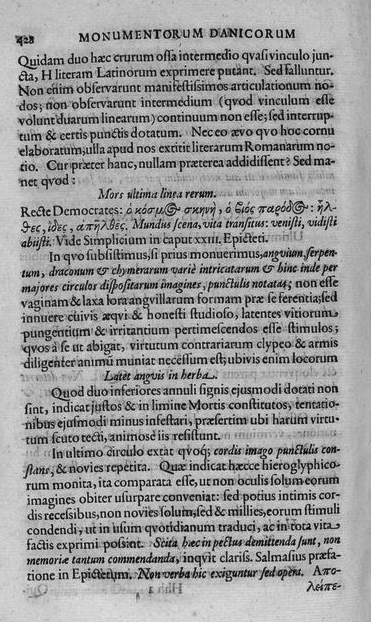 428 MONUMENTORUM DANICORUM
Quidam duo hæc crurum ossa intermedio qvasi vinculo jun-
cta, H literam Latinorum exprimere putant. Sed falluntur.
Non enim observarunt manifestissimos articulationum no-
dos; non observarunt intermedium (qvod vinculum esse
volunt duarum linearum) continuum non esse; sed interrup-
tum & certis punctis dotatum. Nec eo ævo qvo hoc cornu
elaboratum, ulla apud nos extitit literarum Romanarum no-
tio. Cur præter hanc, nullam præterea addidissent? Sed ma-
net qvod:
Mors ultima linea rerum.
Recte Democrates: ὁ κόσμος σκηνὴ, ὁ βίος παροδος: ἦλ-
θες, ἶδες, ἀπῆλθες. Mundus scena, vita transitus: venisti, vidisti
abiisti. Vide Simplicium in caput XXIII. Epicteti.
In qvo subsistimus, si prius monuerimus, angvium, serpen-
tum, draconum & chymærarum variè intricatarum & hinc inde per
majores circulos dispositarum imagines, punctulis notatas; non esse
vaginam & laxa lora angvillarum formam præ se ferentia; sed
innuere cuivis æqvi & honesti studioso, latentes vitiorum
pungentium & irritantium pertimescendos esse stimulos;
qvos à se ut abigat, virtutum contrariarum clypeo & armis
diligenter animū muniat necessium est; ubivis enim locorum
Latet angvis in herba.
Quod duo inferiores annuli signis ejusmodi dotati non
sint, indicat justos & in limine Mortis constitutos, tentatio-
nibus ejusmodi minus infestari, præsertim ubi harum virtu-
tum scuto tecti, animose iis resistunt.
In ultimo circulo extat qvoq; cordis imago punctulis con-
stans, & novies repetita. Quæ indicat hæcce hieroglyphico-
rum monita, ita comparata esse, ut non oculis solum eorum
imagines obiter usurpare conveniat: sed potius intimis cor-
dis recessibus, non novies solum, sed & millies, eorum stimuli
condendi, ut in usum qvotidianum traduci, ac in tota vita
factis exprimi possint. Scita hæc in pectus demittenda sunt, non
memoriæ tantum commendanda, inqvit clariss. Salmasius præfa-
tione in Epictetum. Non verba hic exiguntur sed opera. Ἀπο-
λείπε-